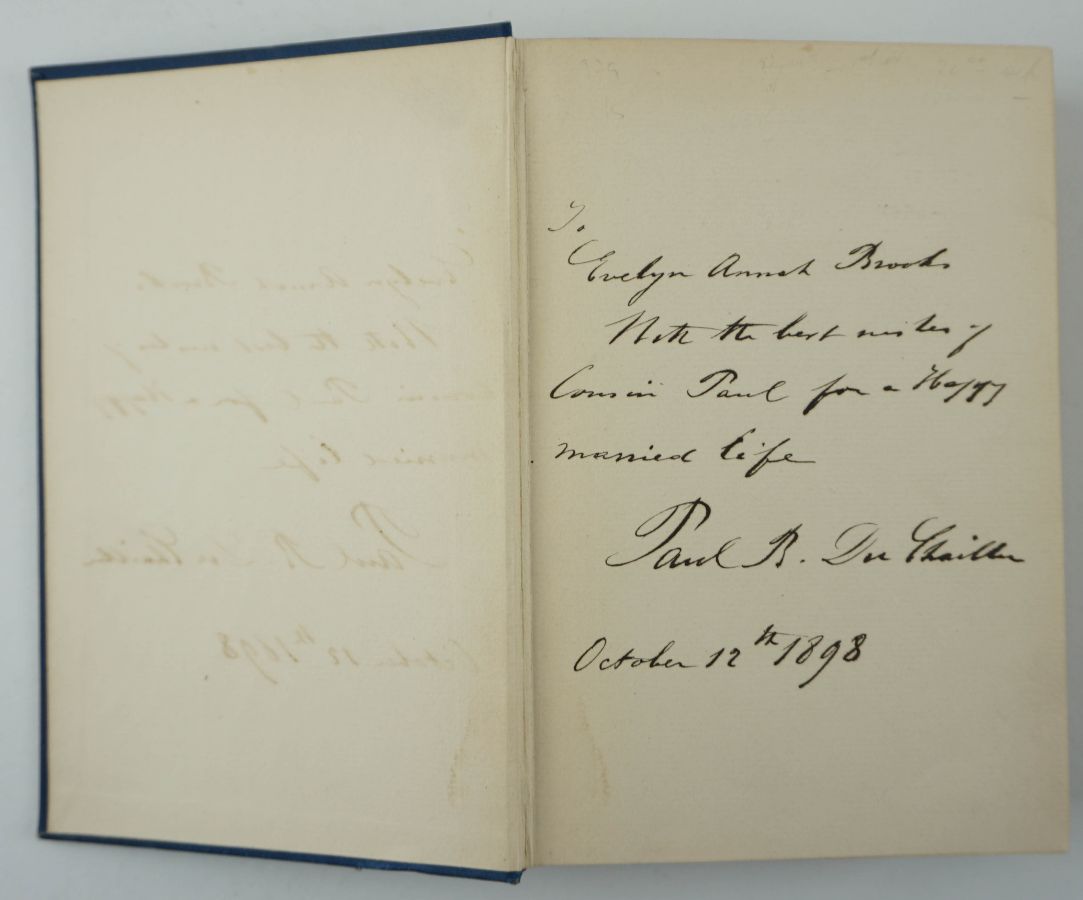 To
Evelyn Annah Brooks
With the best wishes of
Cousin Paul for a Happy
married life
Paul B. Du Chaillu
October 12th 1898